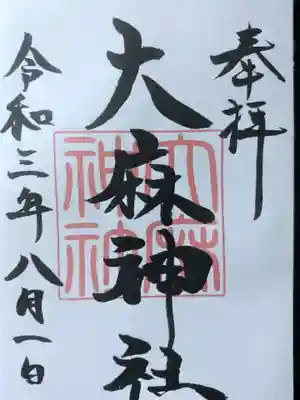 奉拝
大麻神社
大麻神社
令和三年八月一日